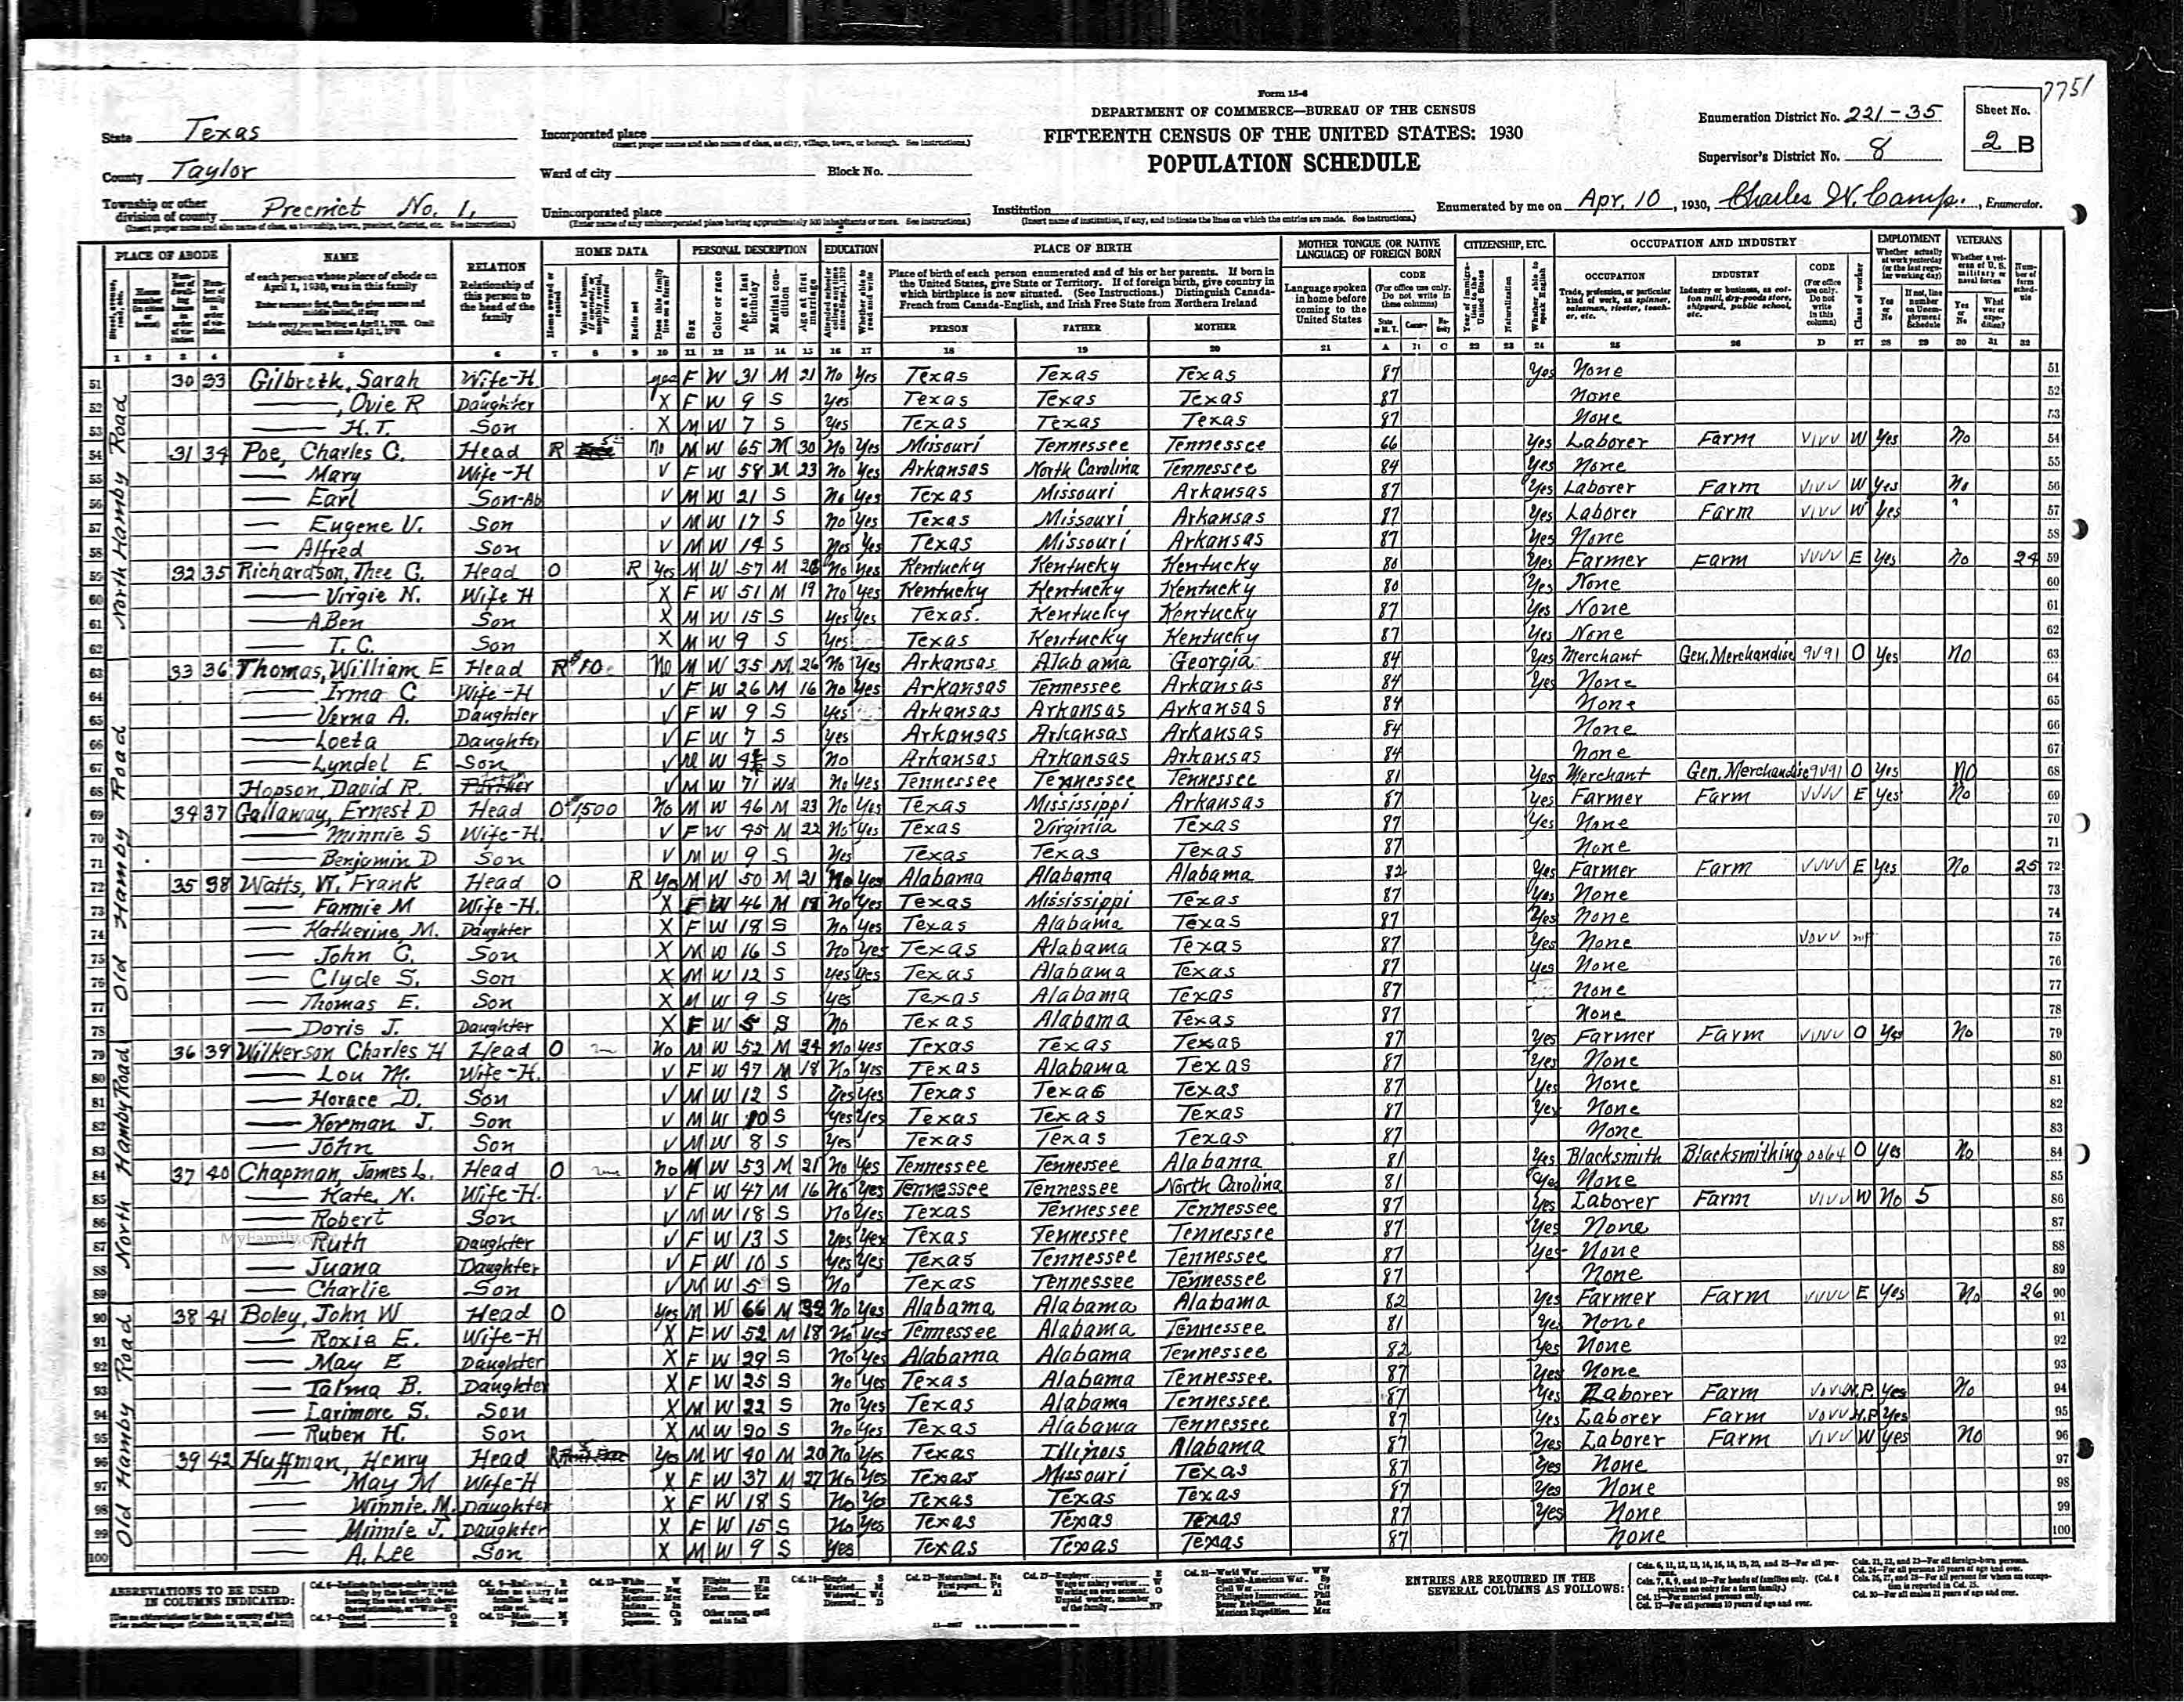 7751
Form 15-6
DEPARTMENT OF COMMERCE—BUREAU OF THE CENSUS
FIFTEENTH CENSUS OF THE UNITED STATES: 1930
POPULATION SCHEDULE
State Texas
County Taylor
Township or other division of county Precinct No. 1.
Incorporated place
Ward of city Block No.
Unincorporated place
Institution
Enumeration District No. 221-35
Supervisor's District No. 8
Sheet No. 2 B
Enumerated by me on Apr. 10, 1930, Charles W. Camp., Enumerator.
PLACE OF ABODE NAME RELATION HOME DATA PERSONAL DESCRIPTION EDUCATION PLACE OF BIRTH MOTHER TONGUE (OR NATIVE LANGUAGE) OF FOREIGN BORN CITIZENSHIP, ETC. OCCUPATION AND INDUSTRY EMPLOYMENT VETERANS
PERSON FATHER MOTHER CODE OCCUPATION INDUSTRY CODE
North Hamby Road
51 30 33 Gilbreth, Sarah Wife-H yes F W 31 M 21 No Yes Texas Texas Texas 87 Yes None 51
52 —, Ovie R Daughter X F W 9 S Yes Texas Texas Texas 87 None 52
53 — H.T. Son X M W 7 S Yes Texas Texas Texas 87 None 53
54 31 34 Poe, Charles C. Head R no M W 65 M 30 No Yes Missouri Tennessee Tennessee 66 Yes Laborer Farm VIVV W Yes No 54
55 — Mary Wife-H V F W 58 M 23 No Yes Arkansas North Carolina Tennessee 84 Yes None 55
56 — Earl Son-Ab V M W 21 S No Yes Texas Missouri Arkansas 87 Yes Laborer Farm VIVV W Yes No 56
57 — Eugene V. Son V M W 17 S No Yes Texas Missouri Arkansas 87 Yes Laborer Farm VIVV W Yes 57
58 — Alfred Son V M W 14 S Yes Yes Texas Missouri Arkansas 87 Yes None 58
59 32 35 Richardson, Thee C. Head O R Yes M W 57 M No Yes Kentucky Kentucky Kentucky 80 Yes Farmer Farm VVVV E Yes No 24 59
60 — Virgie N. Wife H X F W 51 M 19 No Yes Kentucky Kentucky Kentucky 80 Yes None 60
61 — A Ben Son X M W 15 S Yes Yes Texas. Kentucky Kentucky 87 Yes None 61
62 — T. C. Son X M W 9 S Yes Texas Kentucky Kentucky 87 Yes None 62
Old Hamby Road
63 33 36 Thomas, William E Head R $10 No M W 35 M 26 No Yes Arkansas Alabama Georgia 84 Yes Merchant Gen. Merchandise 9V91 O Yes No 63
64 — Irma C Wife-H V F W 26 M 16 No Yes Arkansas Tennessee Arkansas 84 Yes None 64
65 — Verna A. Daughter V F W 9 S Yes Arkansas Arkansas Arkansas 84 None 65
66 — Loeta Daughter V F W 7 S Yes Arkansas Arkansas Arkansas 84 None 66
67 — Lyndel E Son V M W S No Arkansas Arkansas Arkansas 84 None 67
68 Hopson, David R. Partner V M W 71 Wd No Yes Tennessee Tennessee Tennessee 81 Yes Merchant Gen. Merchandise 9V91 O Yes No 68
69 34 37 Gallaway, Ernest D Head O $1,500 No M W 46 M 23 No Yes Texas Mississippi Arkansas 87 Yes Farmer Farm VVVV E Yes No 69
70 — Minnie S Wife-H. V F W 45 M 22 No Yes Texas Virginia Texas 87 Yes None 70
71 — Benjamin D Son V M W 9 S Yes Texas Texas Texas 87 None 71
72 35 38 Watts, W. Frank Head O R Yes M W 50 M 21 No Yes Alabama Alabama Alabama 82 Yes Farmer Farm VVVV E Yes No 25 72
73 — Fannie M Wife-H. X F W 46 M 18 No Yes Texas Mississippi Texas 87 Yes None 73
74 — Katherine M. Daughter X F W 18 S No Yes Texas Alabama Texas 87 Yes None 74
75 — John C. Son X M W 16 S No Yes Texas Alabama Texas 87 Yes None 75
76 — Clyde S. Son X M W 12 S Yes Yes Texas Alabama Texas 87 Yes None 76
77 — Thomas E. Son X M W 9 S Yes Texas Alabama Texas 87 None 77
78 — Doris J. Daughter X F W 5 S No Texas Alabama Texas 87 None 78
North Hamby Road
79 36 39 Wilkerson Charles H Head O No M W 52 M 24 No Yes Texas Texas Texas 87 Yes Farmer Farm VVVV O Yes No 79
80 — Lou M. Wife-H. V F W 47 M 18 No Yes Texas Alabama Texas 87 Yes None 80
81 — Horace D. Son V M W 12 S Yes Yes Texas Texas Texas 87 Yes None 81
82 — Norman J. Son V M W 10 S Yes Yes Texas Texas Texas 87 Yes None 82
83 — John Son V M W 8 S Yes Texas Texas Texas 87 None 83
84 37 40 Chapman, James L. Head O No M W 53 M 21 No Yes Tennessee Tennessee Alabama 81 Yes Blacksmith Blacksmithing O Yes No 84
85 — Kate N. Wife-H. V F W 47 M 16 No Yes Tennessee Tennessee North Carolina 81 Yes None 85
86 — Robert Son V M W 18 S No Yes Texas Tennessee Tennessee 87 Yes Laborer Farm VIVV W No 5 86
87 — Ruth Daughter V F W 13 S Yes Yes Texas Tennessee Tennessee 87 Yes None 87
88 — Juana Daughter V F W 10 S Yes Yes Texas Tennessee Tennessee 87 Yes None 88
89 — Charlie Son V M W 5 S No Texas Tennessee Tennessee 87 None 89
Old Hamby Road
90 38 41 Boley, John W Head O Yes M W 66 M No Yes Alabama Alabama Alabama 82 Yes Farmer Farm VVVV E Yes No 26 90
91 — Roxie E. Wife-H X F W 52 M 18 No Yes Tennessee Alabama Tennessee 81 Yes None 91
92 — May E Daughter X F W 29 S No Yes Alabama Alabama Tennessee 82 Yes None 92
93 — Talma B. Daughter X F W 25 S No Yes Texas Alabama Tennessee. 87 Yes None 93
94 — Larimore S. Son X M W 22 S No Yes Texas Alabama Tennessee 87 Yes Laborer Farm VOVV N.P. Yes No 94
95 — Ruben H. Son X M W 20 S No Yes Texas Alabama Tennessee 87 Yes Laborer Farm VOVV N.P. Yes 95
96 39 42 Huffman, Henry Head R Yes M W 40 M 20 No Yes Texas Illinois Alabama 87 Yes Laborer Farm VIVV W Yes No 96
97 — May M Wife-H X F W 37 M 27 No Yes Texas Missouri Texas 87 Yes None 97
98 — Winnie M. Daughter X F W 18 S No Yes Texas Texas Texas 87 Yes None 98
99 — Minnie J. Daughter X F W 15 S No Yes Texas Texas Texas 87 Yes None 99
100 — A. Lee Son X M W 9 S Yes Texas Texas Texas 87 None 100
ABBREVIATIONS TO BE USED IN COLUMNS INDICATED:
ENTRIES ARE REQUIRED IN THE SEVERAL COLUMNS AS FOLLOWS: